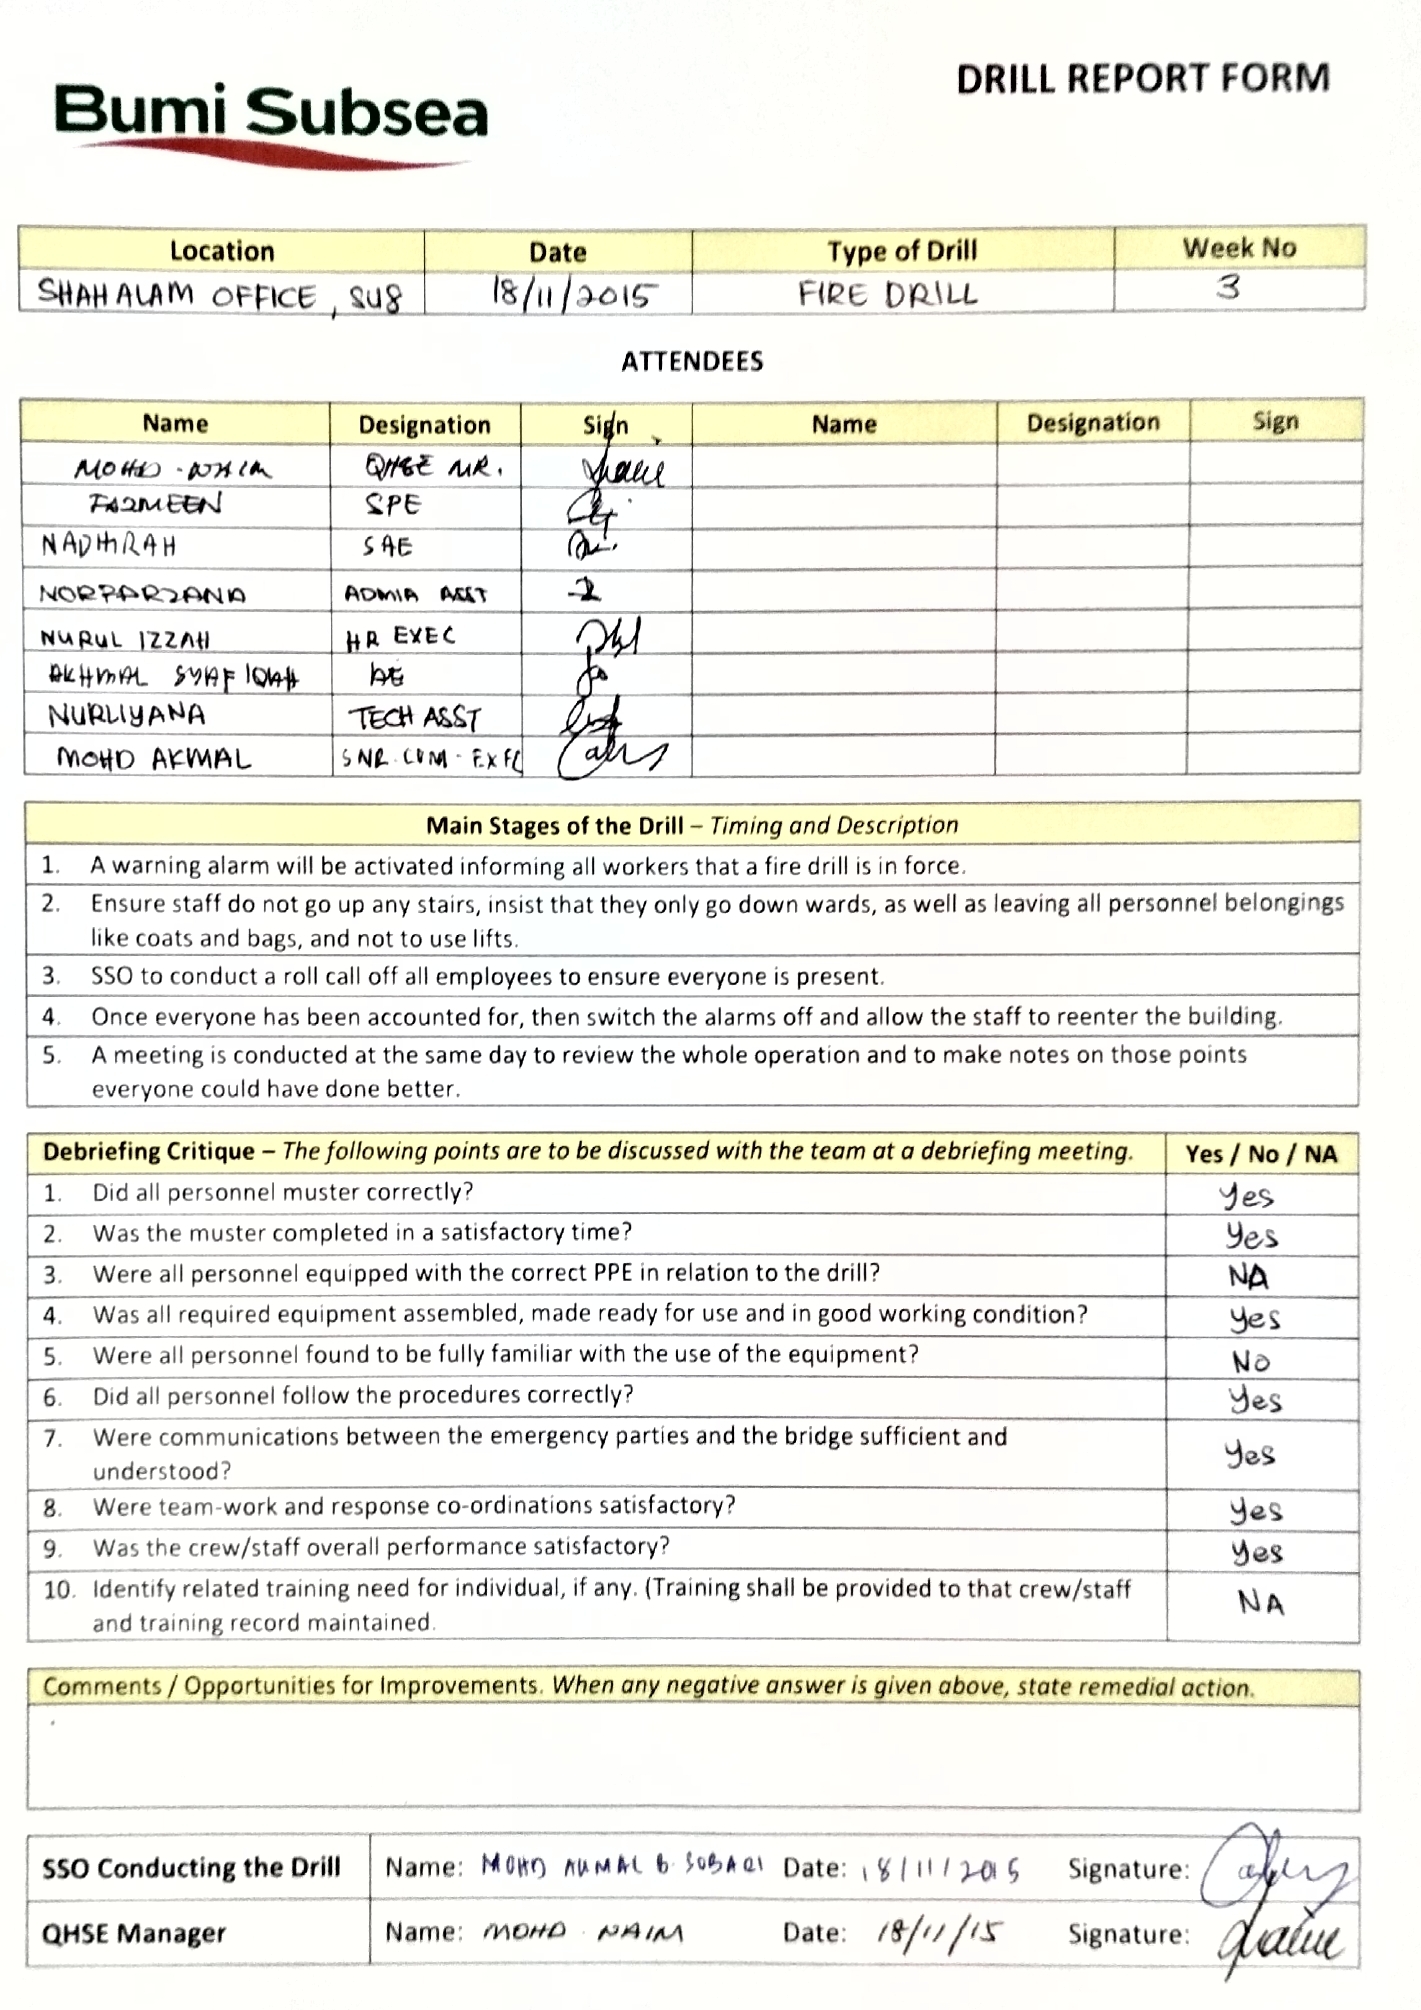 DRILL REPORT FORM
Bumi Subsea
Location Date Type of Drill Week No
SHAH ALAM OFFICE, SU8 18/11/2015 FIRE DRILL 3
ATTENDEES
Name Designation Sign Name Designation Sign
MOHD. NAIM QHSE MR.
FAZMEEN SPE
NADHRAH SAE
NORFARZANA ADMIN ASST
NURUL IZZAH HR EXEC
AKHMAL SYAFIQAH AE
NURLIYANA TECH ASST
MOHD AKMAL SNR. COM. EXEC
Main Stages of the Drill – Timing and Description
1. A warning alarm will be activated informing all workers that a fire drill is in force.
2. Ensure staff do not go up any stairs, insist that they only go down wards, as well as leaving all personnel belongings
like coats and bags, and not to use lifts.
3. SSO to conduct a roll call off all employees to ensure everyone is present.
4. Once everyone has been accounted for, then switch the alarms off and allow the staff to reenter the building.
5. A meeting is conducted at the same day to review the whole operation and to make notes on those points
everyone could have done better.
Debriefing Critique – The following points are to be discussed with the team at a debriefing meeting. Yes / No / NA
1. Did all personnel muster correctly? Yes
2. Was the muster completed in a satisfactory time? Yes
3. Were all personnel equipped with the correct PPE in relation to the drill? NA
4. Was all required equipment assembled, made ready for use and in good working condition? Yes
5. Were all personnel found to be fully familiar with the use of the equipment? No
6. Did all personnel follow the procedures correctly? Yes
7. Were communications between the emergency parties and the bridge sufficient and
understood? Yes
8. Were team-work and response co-ordinations satisfactory? Yes
9. Was the crew/staff overall performance satisfactory? Yes
10. Identify related training need for individual, if any. (Training shall be provided to that crew/staff
and training record maintained. NA
Comments / Opportunities for Improvements. When any negative answer is given above, state remedial action.
SSO Conducting the Drill Name: MOHD AKMAL B. SOBARI Date: 18/11/2015 Signature:
QHSE Manager Name: MOHD. NAIM Date: 18/11/15 Signature: